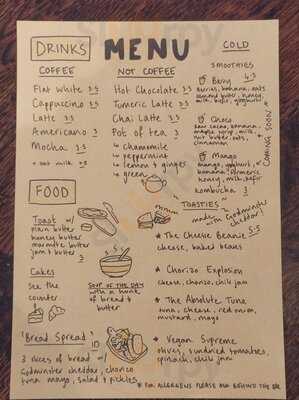 DRINKS
MENU
COLD
COFFEE
Flat White 3.5
Cappuccino 3.5
Latte 3.5
Americano 3
Mocha 3.5
+ oat milk
NOT COFFEE
Hot Chocolate 3.5
Tumeric Latte 3.5
Chai Latte 3.5
Pot of tea 3
↳ chamomile
↳ peppermint
↳ lemon + ginger
↳ green
SMOOTHIES
Berry 4.5
Berries, banana, oats
milk,
Choco
banana,
maple syrup, milk,
nut butter, oats,
cinnamon
Mango
mango, yoghurt,
banana, tumeric
honey, milk
* COMING SOON *
kombucha 3
FOOD
Toast w/
plain butter
honey butter
marmite butter
jam + butter
3
Cakes
See the
counter
SOUP OF THE DAY
with a hunk
of bread +
butter
5
TOASTIES
made with Godminster
cheddar!
5.5
* The Cheesie Beanie
cheese, baked beans
* Chorizo Explosion
cheese, chorizo, chilli jam
* The Absolute Tuna
tuna, cheese, red onion,
mustard, mayo
* Vegan Supreme
olives, sundried tomatoes,
spinach, chilli jam
'Bread Spread' 10
3 slices of bread w/
Godminster cheddar, chorizo
tuna mayo, salad + pickles
* FOR ALLERGENS PLEASE ASK BEHIND THE BAR